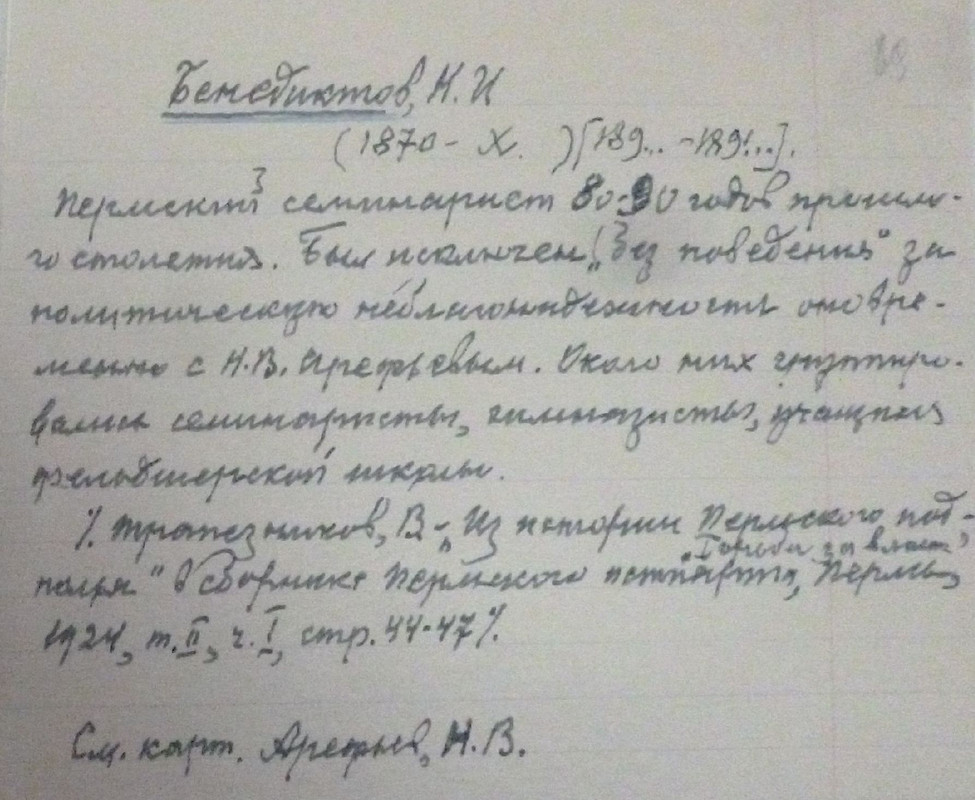 Бенедиктов, Н. И
(1870 - X. ) [189... - 189...].
Пермский семинарист 80-90 годов прошло-
го столетия. Был исключен „без поведения" за
политическую неблагонадежность оновре-
менно с Н.В. Арефьевым. Около них группиро-
вались семинаристы, гимназисты, учащиеся
фельдшерской школы.
% Трапезников, В - „Из истории Пермского под-
„Борьба за власть",
полья" в Сборнике Пермского истпарта, Пермь,
1924, т. II, ч. I, стр. 44-47 %.
См. карт. Арефьев, Н.В.